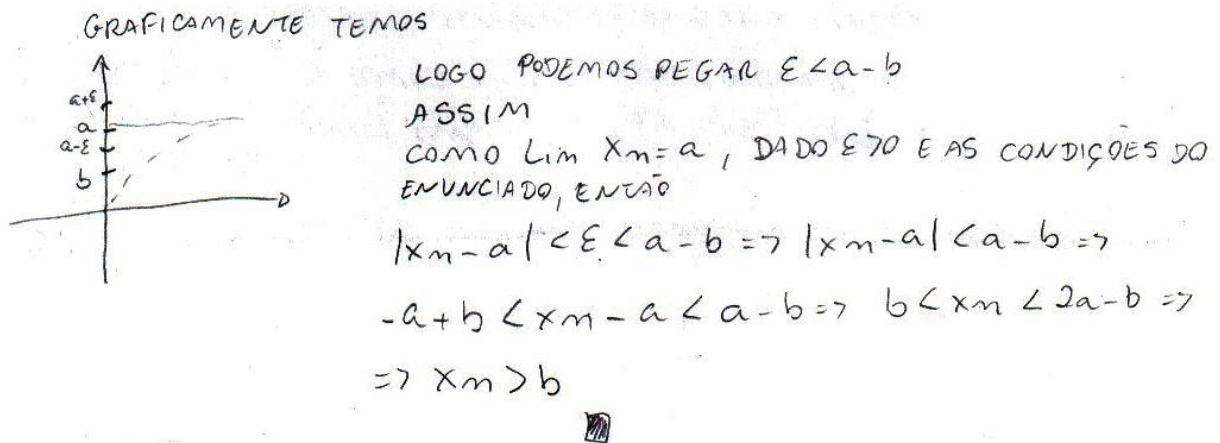 GRAFICAMENTE TEMOS
a+ε
a
a-ε
b
LOGO PODEMOS PEGAR ε<a-b
ASSIM
COMO Lim Xn=a, DADO ε>0 E AS CONDIÇÕES DO
ENUNCIADO, ENTÃO
|xn-a|<ε<a-b => |xn-a|<a-b =>
-a+b<xn-a<a-b => b<xn<2a-b =>
=> xn>b